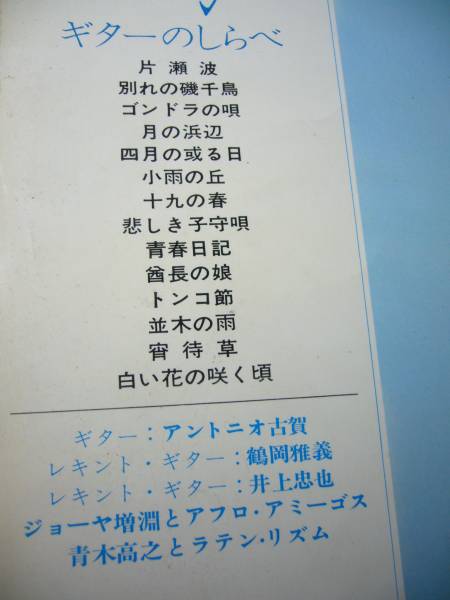 ギターのしらべ
片瀬波
別れの磯千鳥
ゴンドラの唄
月の浜辺
四月の或る日
小雨の丘
十九の春
悲しき子守唄
青春日記
酋長の娘
トンコ節
並木の雨
宵待草
白い花の咲く頃
ギター：アントニオ古賀
レキント・ギター：鶴岡雅義
レキント・ギター：井上忠也
ジョーヤ増淵とアフロ・アミーゴス
青木高之とラテン・リズム